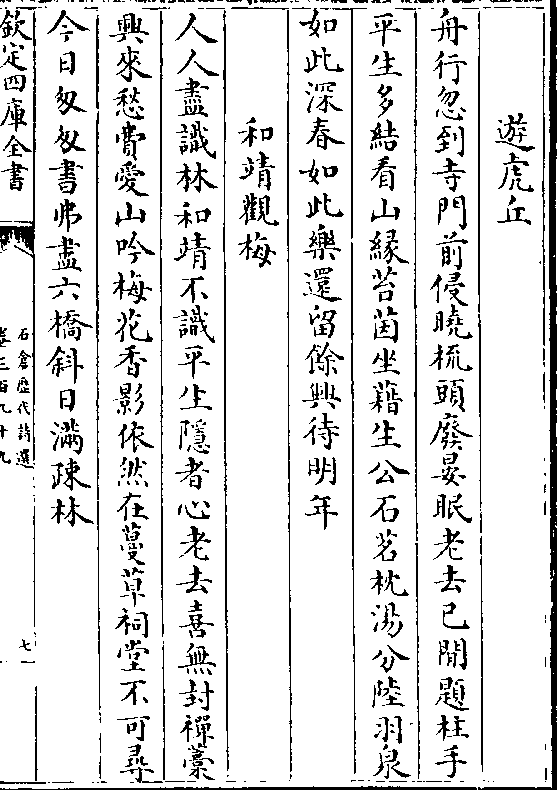 遊虎丘
舟行忽到寺門前侵曉梳頭廢晏眠老去已閒題柱手
平生多結看山緣苔茵坐藉生公石茗枕湯分陸羽泉
如此深春如此樂還留餘興待明年
和靖觀梅
人人盡識林和靖不識平生隱者心老去喜無封禪藁
興來愁費愛山吟梅花香影依然在蔓草祠堂不可尋
今日匆匆書弗盡六橋斜日滿疎林
欽定四庫全書
石倉歷代詩選
卷三百九十九
七